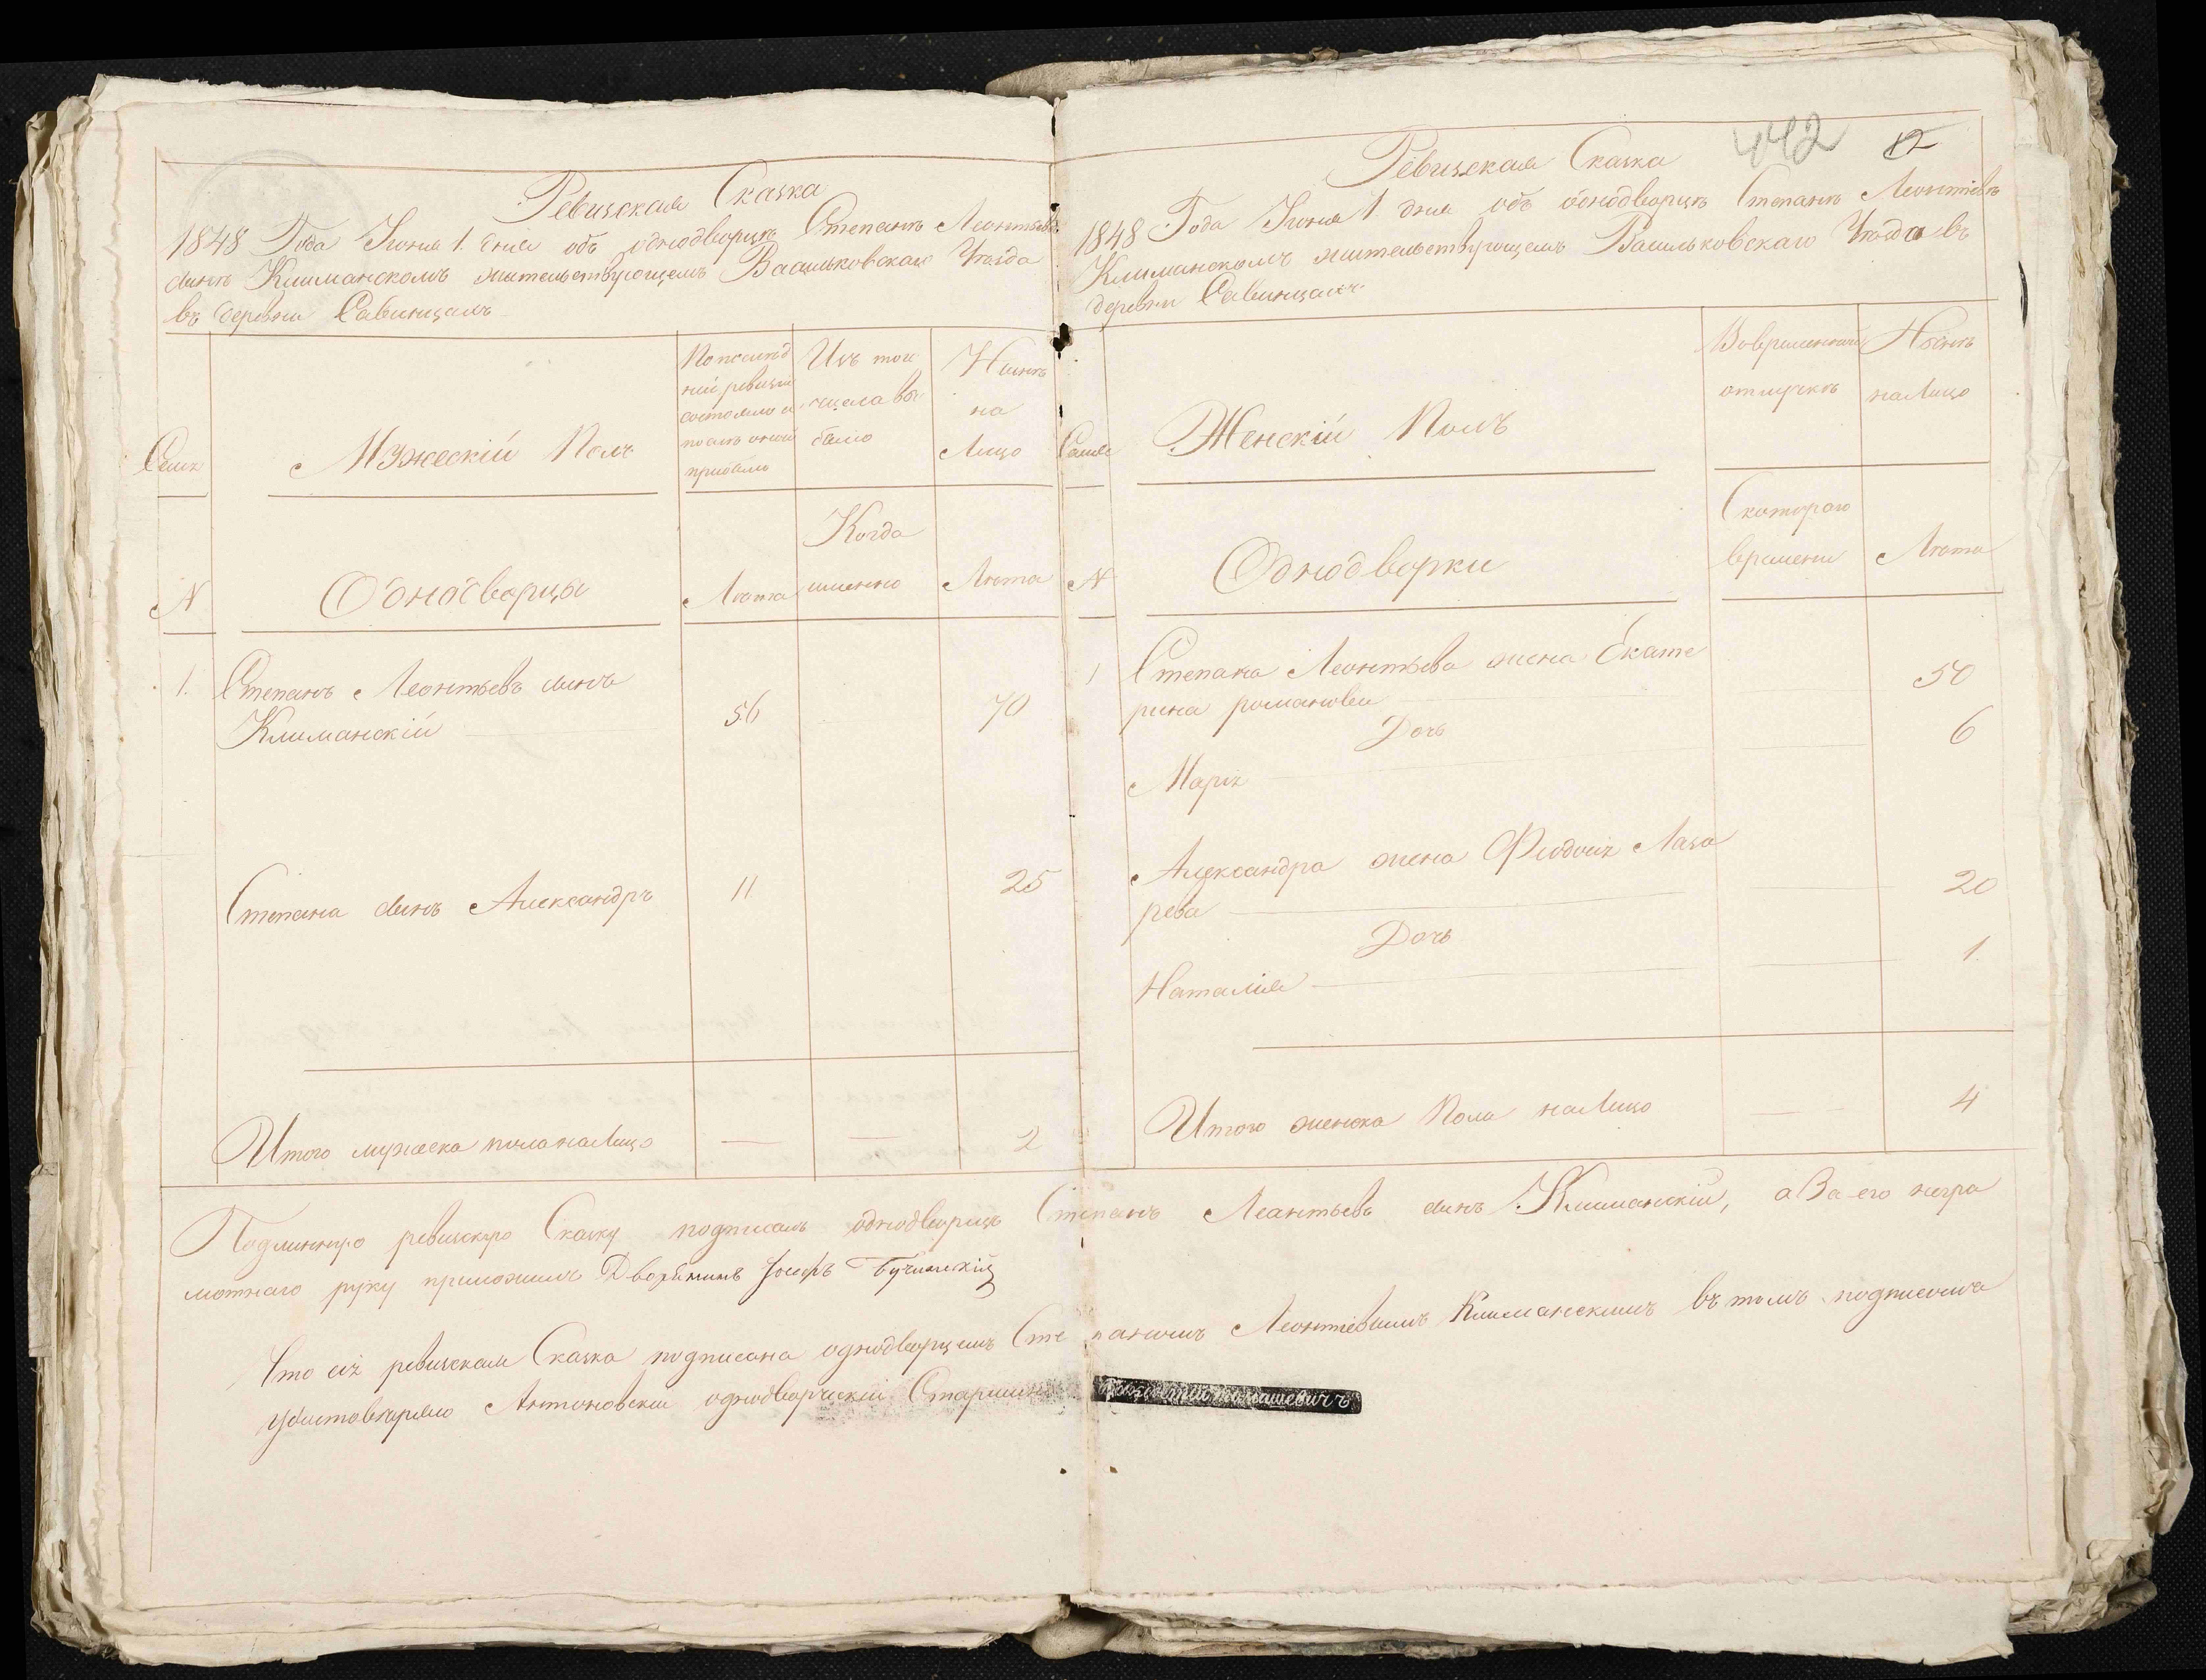 Ревизская Сказка
1848 Года Іюня 1. дня объ однодворцѣ Степанѣ Леонтьевѣ
сынѣ Климанскомъ жительствующемъ Васильковскаго Уѣзда
въ деревни Савинцахъ
Семья
Мужескій Полъ
По послѣд
ней ревизіи
состояло и
послѣ оной
прибыло
Изъ того
числа вы
было
Нынѣ
на
Лицо
N
Однодворцы
Лѣта
Когда
именно
Лѣта
1. Степанъ Леонтьевъ сынъ
Климанскій 56 70
Степана сынъ Александръ 11 25
Итого мужеска пола на Лицо — — 2
442 12
Ревизская Сказка
1848 Года Іюня 1 дня объ однодворцѣ Степанѣ Леонтіевѣ
Климанскомъ жительствующемъ Васильковскаго Уѣзда въ
деревни Савинцахъ
Семья
Женскій Полъ
Во временной
отлучкѣ
Нынѣ
на Лицо
N
Однодворки
С котораго
времени
Лѣта
1 Степана Леонтьева жена Екате
рина романова 50
Дочь
Марія 6
Александра жена Феодосія Лаза
рева 20
Дочь
Наталія 1.
Итого женска Пола на Лицо — 4
Подлинную ревизскую Сказку подписалъ однодворецъ Степанъ Леонтьевъ сынъ Климанскій, а За его негра
мотнаго руку приложилъ Дворянинъ Іосифъ Бучинскій
Что сія ревизская Сказка подписана однодворцемъ Степаномъ Леонтіевымъ Климанскимъ въ томъ подписомъ
удостовѣряю Антоновскій однодворческій Старшина